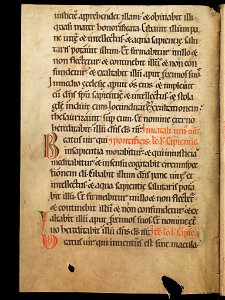 iusticie apprehendet illam. & obviabit illi
quasi mater honorificata. Cibavit illum pa
ne vite & intellectus. & aqua sapientie salu
taris potavit illum. Et firmabitur in illo &
non flectetur. & continebit illum & non con
fundetur. & exaltabit illum apud proximos suos. In
medio ecclesie aperiet os eius. & implevit
eum dns spu sapientie & intellectus. & stola
glorie induit eum. Iocunditatem & exultationem
thesaurizavit super eum. Et nomine eterno
hereditabit illum dns ds nr.
Beatus vir qui pontificis. lc. l. sapientie.
in sapientia morabitur. & qui in iusticia
meditabitur. & in sensu cogitabit circumspec
tionem di. Cibabit illum dns pane vite &
intellectus. & aqua sapientie salutaris pota
bit illum. Et firmabitur in illo & non flectetur.
& continebit illum & non confundetur. & ex
altabit illum apud proximos suos. Et nomine eter
no hereditabit illum dns ds nr. lc. l. sapientie
Beatus vir qui inventus est sine macula